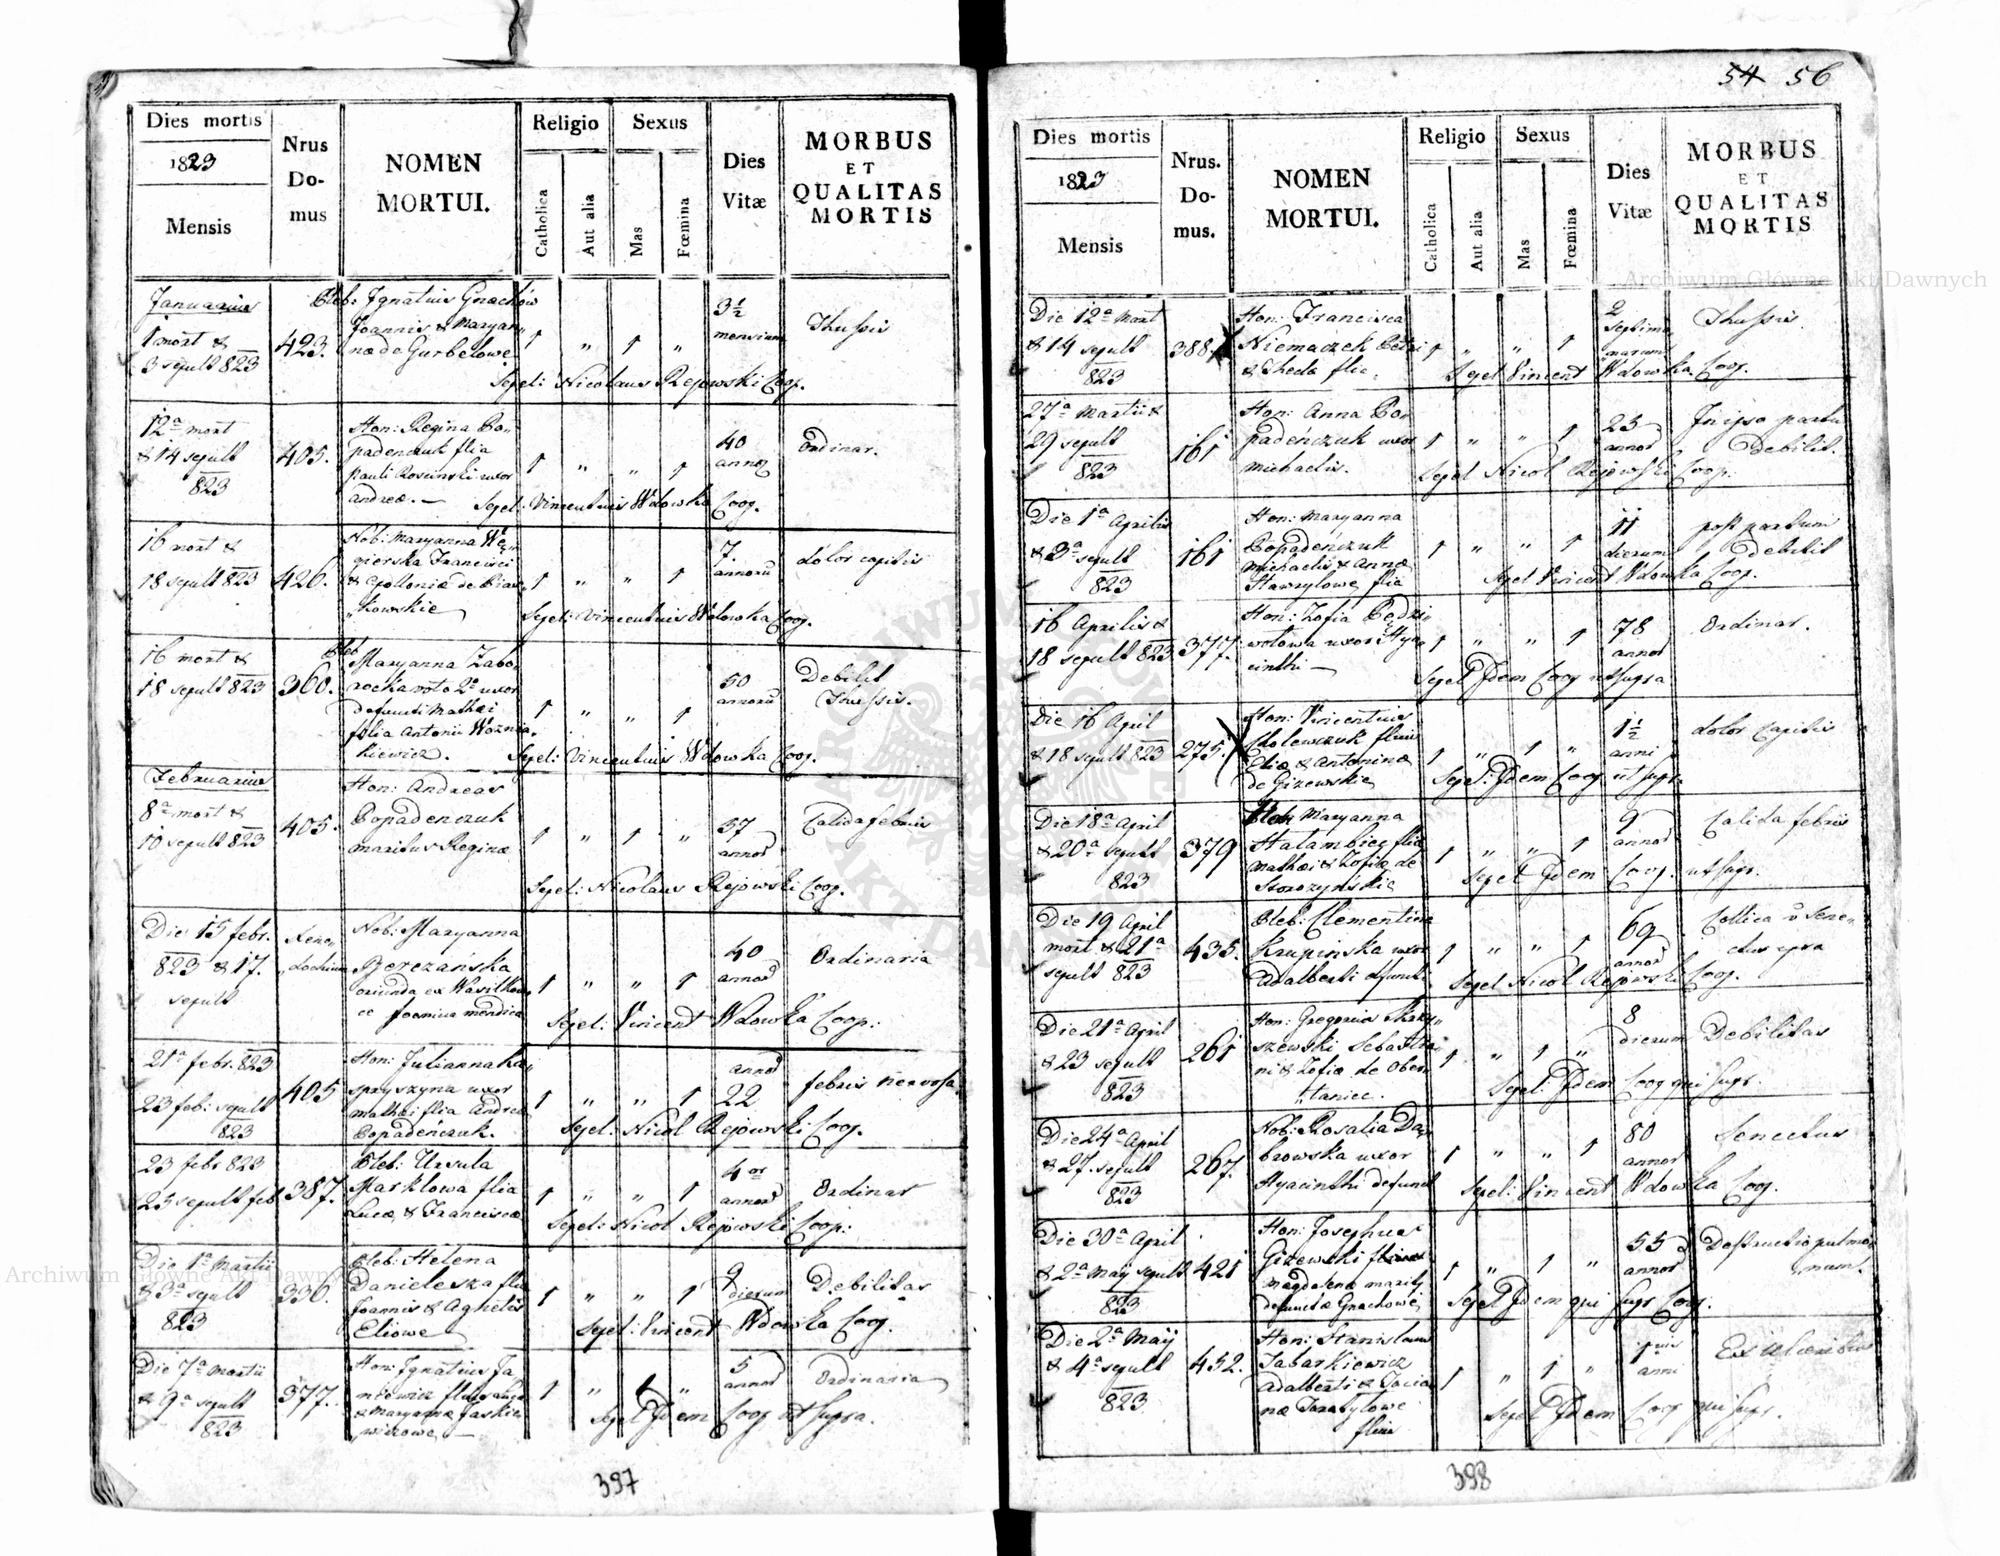 54 56
Dies mortis
1823
Mensis
Nrus
Do-
mus
NOMEN
MORTUI.
Religio
Catholica
Aut alia
Sexus
Mas
Fœmina
Dies
Vitæ
MORBUS
ET
QUALITAS
MORTIS
Januarius
1 mort &
3 sepult 823
423.
Pleb: Ignatius Gnachów
Joannis & Maryan-
næ de Gurbelowe
1 " 1 "
3½
mensium
Thussis
Sepel: Nicolaus Rejowski Coop.
12a mort
& 14 sepult
823
405.
Hon: Regina Po-
padenczuk filia
Pauli Rosinski uxor
Andreæ. —
1 " " 1
40
annor
Ordinar.
Sepel: Vincentius Wdowka Coop.
16 mort &
18 sepult 823
426.
Nob: Maryanna Wę-
gierska Francisci
& Apolloniæ de
1 " " 1
7.
annorū
dolor capitis
Sepel: Vincentius Wdowka Coop.
16 mort &
18 sepult 823
360.
Pleb
Maryanna Zabo-
rocka voto 2o uxor
defuncti Mathæi
filia Antonii Woznia-
kiewicz.
1 " " 1
50
annorū
Debilit
Thussis.
Sepel: Vincentius Wdowka Coop.
Februarius
8a mort &
10 sepult 823
405.
Hon: Andreas
Popadenczuk
maritus Reginæ
1 " 1 "
37
annor
Calida febris
Sepel: Nicolaus Rejowski Coop.
Die 15 febr.
823 & 17.
sepult
Xeno-
dochium
Nob: Maryanna
Berezańska
oriunda ex Wasilkow-
ce foemina mendica
1 " " 1
40
annor
Ordinaria
Sepel: Vincent Wdowka Coop:
21a febr. 823
23 feb: sepult
823
405
Hon: Julianna Ka-
spryszyna uxor
Mathæi filia Andreæ
Popadeńczuk.
1 " " 1
annor
22
febris nervosa
Sepel: Nicol Rejowski Coop.
23 febr 823
25 sepult feb
387.
Pleb: Ursula
Marklowa filia
Lucæ & Franciscæ
1 " " 1
4or
annor
Ordinar
Sepel: Nicol Rejowski Coop:
Die 1a Martii
& 3a sepult
823
336.
Pleb: Helena
Danielesza filia
Joannis & Aghetis
Eliowe
1 " " 1
9
dierum
Debilitas
Sepel: Vincent Wdowka Coop.
Die 7a Martii
& 9a sepult
823
377.
Hon: Ignatius Ja
nowicz filius
& Maryannæ Jaskie
wiczowe —
1 " 1 "
5
annor
Ordinaria
Sepel Idem Coop ut supra.
397
Dies mortis
1823
Mensis
Nrus.
Do-
mus.
NOMEN
MORTUI.
Religio
Catholica
Aut alia
Sexus
Mas
Fœmina
Dies
Vitæ
MORBUS
ET
QUALITAS
MORTIS
Die 12a Mart
& 14 sepult
823
388
Hon: Francisca
Niemaczek Petri
& Theclæ filia.
1 " " 1
2
septima
narum
Thussis.
Sepel Vincent Wdowka Coop.
27a Martii &
29 sepult
823
161
Hon: Anna Po-
padeńczuk uxor
Michaelis.
1 " " 1
23
annor
In ipso partu
Debilit.
Sepel Nicol Rejowski Coop.
Die 1a Aprilis
& 3a sepult
823
161
Hon: Maryanna
Popadeńczuk
Michaelis & Annæ
Hawrylowe filia
1 " " 1
11
dierum
post partum
Debilit
Sepel Vincent Wdowka Coop.
16 Aprilis &
18 sepult 823
377.
Hon: Zofia Pędzi-
wotowa uxor Hya-
cinthi —
1 " " 1
78
annor
Ordinar.
Sepel Idem Coop ut supra
Die 16 April
& 18 sepult 823
275.
Hon: Vincentius
Cholewczuk filius
Eliæ & Antoninæ
de Gizewskie
1 " 1 "
1½
anni
dolor Capitis
Sepel: Idem Coop ut supr.
Die 18a April
& 20a sepult
823
379
Hon Maryanna
Hatambiec filia
Mathæi & Zofiæ de
Storozyńskie
1 " " 1
9
annor
Calida febris
Sepel Idem Coop. ut supr.
Die 19 April
mort & 21a
sepult 823
435.
Pleb: Clementina
Krupinska uxor
Adalberti defuncti
1 " " 1
69
annor
Collica
Sepel Nicol Rejowski Coop.
Die 21a April
& 23 sepult
823
261
Hon: Gregorius Skrzy-
szewski Sebastia-
ni & Zofiæ de Ober-
taniec.
1 " 1 "
8
dierum
Debilitas
Sepel: Idem Coop qui supr.
Die 24a April
& 27. sepult
823
267.
Nob: Rosalia Dą-
browska uxor
Hyacinthi defuncti
1 " " 1
80
annor
Senectus
Sepel: Vincent Wdowka Coop.
Die 30a April
& 2a Maÿ sepult
823
421
Hon: Josephus
Gizewski filius
Magdalenæ marity
defunctæ Gnachowe
1 " 1 "
55
annor
Destructio pulmo-
num.
Sepel Idem qui supr Coop.
Die 2a Maÿ
& 4a sepult
823
452.
Hon: Stanislaus
Tabarkiewicz
Adalberti &
næ
filius
1 " 1 "
1mi
anni
Ex Ulceribus
Sepel Idem Coop qui supr.
398
Archiwum Główne Akt Dawnych
Archiwum Główne Akt Dawnych
ARCHIWUM GŁÓWNE AKT DAWNYCH